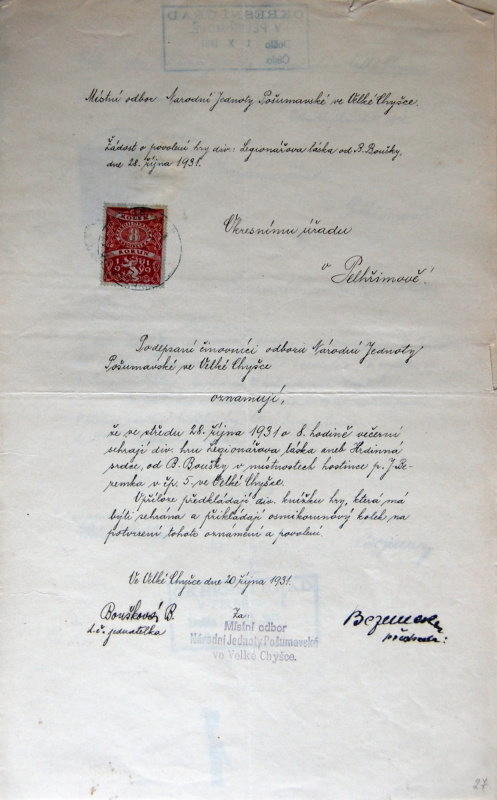 Místní odbor Národní Jednoty Pošumavské ve Velké Chyšce.
Žádost o povolení hry div: Legionářova láska od B. Boušky,
dne 28. října 1931.
KOLEK
8
KORUN
Okresnímu úřadu
v Pelhřimově!
Podepsaní činovníci odboru Národní Jednoty
Pošumavské ve Velké Chyšce
oznamují,
že ve středu 28. října 1931 o 8. hodině večerní
sehrají div. hru Legionářova láska aneb Hrdinná
srdce, od B. Boušky v místnostech hostince p. J. Be-
zemka v čp. 5, ve Velké Chyšce.
V příloze předkládají div. knížku hry, která má
býti sehrána a přikládají osmikorunový kolek na
potvrzení tohoto oznámení a povolení.
Ve Velké Chyšce dne 20 října 1931.
Boušková B.
t. č. jednatelka
Za:
Místní odbor
Národní Jednoty Pošumavské
ve Velké Chyšce.
Bezemek
předseda:
27